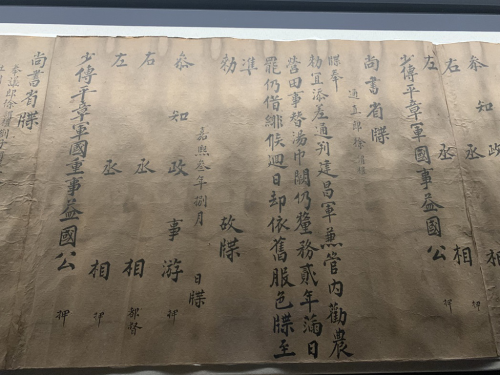 知政
右丞相
左丞相押
少傅平章軍國重事益國公
尚書省牒
通直郎徐謂禮
牒奉
勑宜添差通判建昌軍兼管內勸農
營田事替湯巾闕仍釐務貳年滿日
罷仍借緋候迴日却依舊服色牒至
準
勑故牒
嘉熙叁年捌月 日牒
叅知政事游押
右丞相都督
左丞相押
少傅平章軍國重事益國公押
尚書省牒
奉議郎徐謂禮